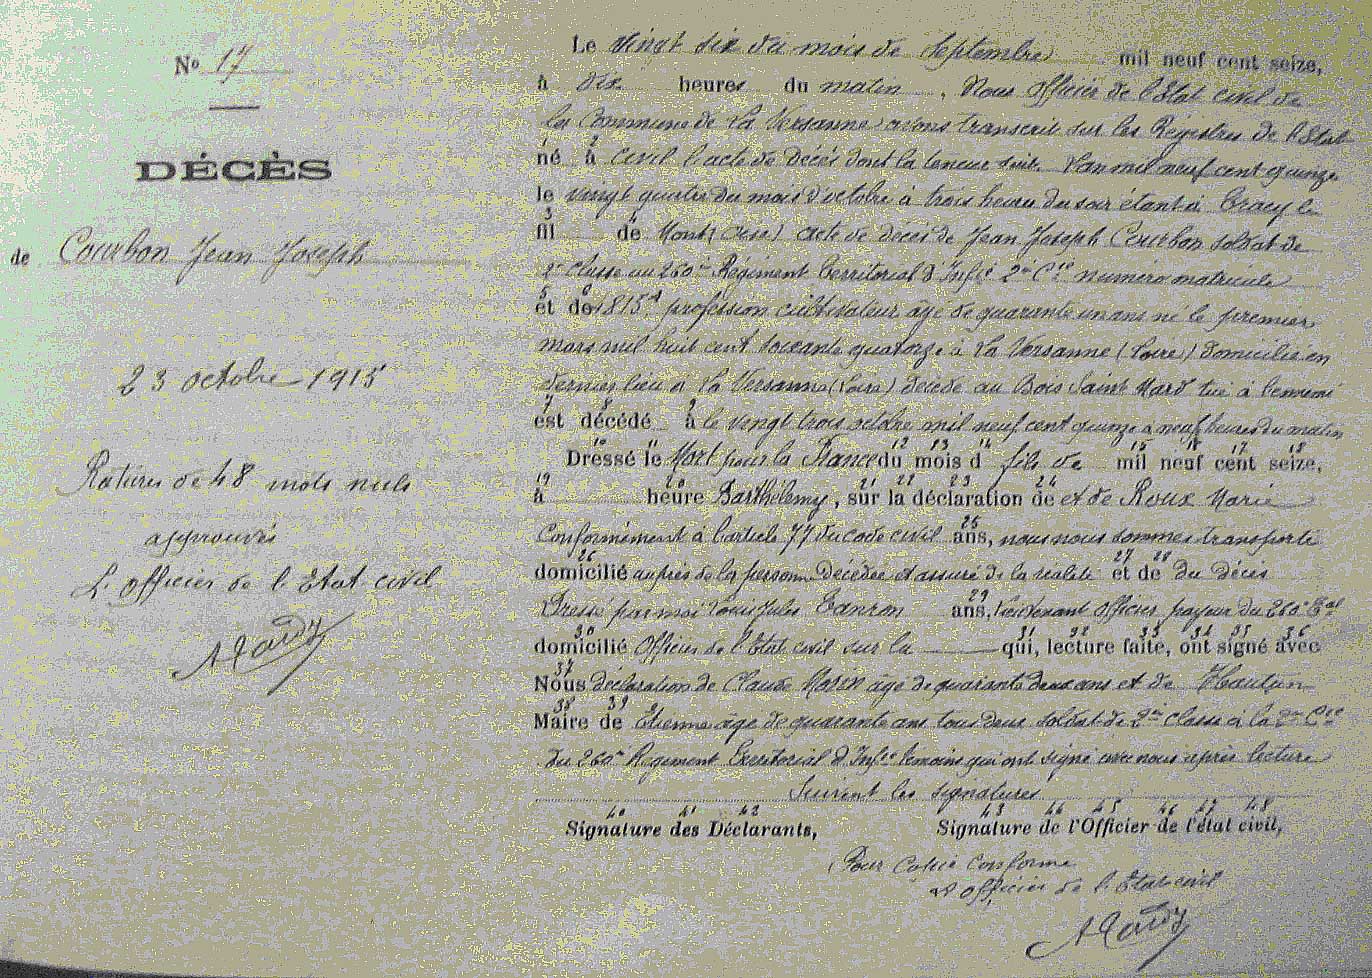 Nº 17
DÉCÈS
de Courbon Jean Joseph
23 octobre 1915
Ratures de 48 mots nuls
approuvés
L'officier de l'Etat civil
Le vingt six du mois de Septembre mil neuf cent seize,
à dix heures du matin, Nous officier de l'Etat civil de
la Commune de La Versanne avons transcrit sur les Registres de l'Etat
1 2
né à civil l'acte de décès dont la teneur suit. L'an mil neuf cent quinze
le vingt quatre du mois d'octobre à trois heures du soir étant à Tracy le
3 4
fil de Mont (Oise) acte de décès de Jean Joseph Courbon soldat de
2e classe au 260me Régiment Territorial d'Infie 2me Cie numéro matricule
5 6
et de 1815 profession cultivateur âgé de quarante un ans né le premier
mars mil huit cent soixante quatorze à La Versanne (Loire) domicilié en
dernier lieu à La Versanne (Loire) décédé au Bois Saint Mard tué à l'ennemi
7 8 9
est décédé à le vingt trois octobre mil neuf cent quinze à neuf heures du matin
10 11 12 13 14 15 16 17 18
Dressé le Mort pour la France du mois d fils de mil neuf cent seize,
19 20 21 22 23 24
à heure Barthélemy, sur la déclaration de et de Roux Marie
25
Conformément à l'article 77 du code civil ans, nous nous sommes transporté
26 27 28
domicilié auprès de la personne décédée et assuré de la réalité et de du décès
29
Dressé par moi Louis Jules ans, lieutenant officier payeur du 260e Tal
30 31 32 33 34 35 36
domicilié Officier de l'Etat civil sur la qui, lecture faite, ont signé avec
37
Nous déclaration de Claude âgé de quarante deux ans et de
38 39
Maire de Etienne âgé de quarante ans tous deux soldat de 2me classe à la 2me Cie
du 260me Régiment Territorial d'Infie témoins qui ont signé avec nous après lecture
Suivent les signatures
40 41 42 43 44 45 46 47 48
Signature des Déclarants, Signature de l'Officier de l'état civil,
Pour Copie Conforme
L'officier de l'Etat civil